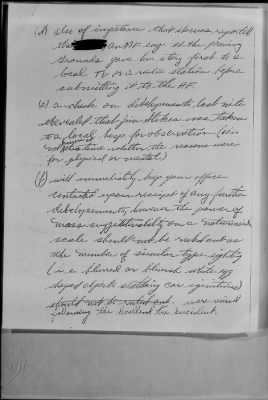 (d) also of importance that it was reported
that an AF engr at the Proving
Grounds gave his story first to a
local TV or a radio station before
submitting it to the AF.
(e) a check on developments last nite
revealed that Jim Stokes was taken
to a local hosp for observation (
not whether the reasons were
for physical or mental)
(f) will immediately keep your office
contacted upon receipt of any further
developments, however the power of
mass suggestibility on a nationwide
scale should not be ruled out as
the number of similar type sighting
(i.e. blurred or bluish white egg
shaped objects stalling car ignitions)
should not be ruled out. were received
following the Levelland Tex incident.